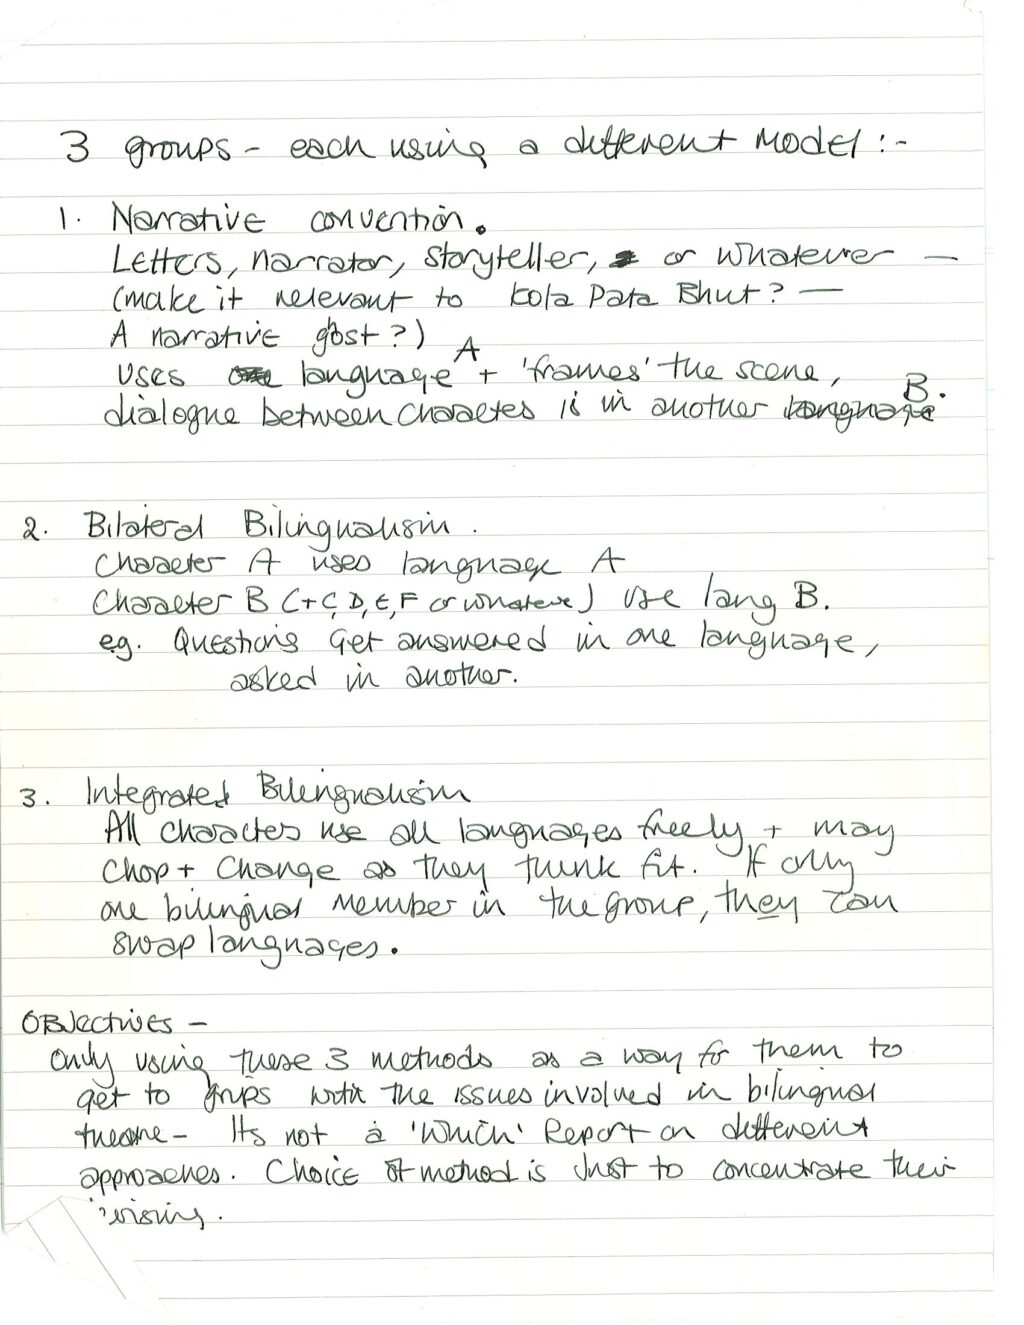 3 groups - each using a different model :-
1. Narrative convention.
Letters, narrator, storyteller, or whatever —
(make it relevant to Kola Pata Bhut? —
A narrative ghost?)
uses language A + 'frames' the scene,
dialogue between charactes is in another B.
2. Bilateral Bilingualism.
Character A uses language A
Character B (+C, D, E, F or whatever) use lang B.
e.g. Questions get answered in one language,
asked in another.
3. Integrated Bilingualism
All charactes use all languages freely + may
chop + change as they think fit. If only
one bilingual member in the group, they can
swap languages.
OBJectives -
Only using these 3 methods as a way for them to
get to grips with the issues involved in bilingual
theatre - Its not a 'Which' Report on different
approaches. Choice of method is just to concentrate their